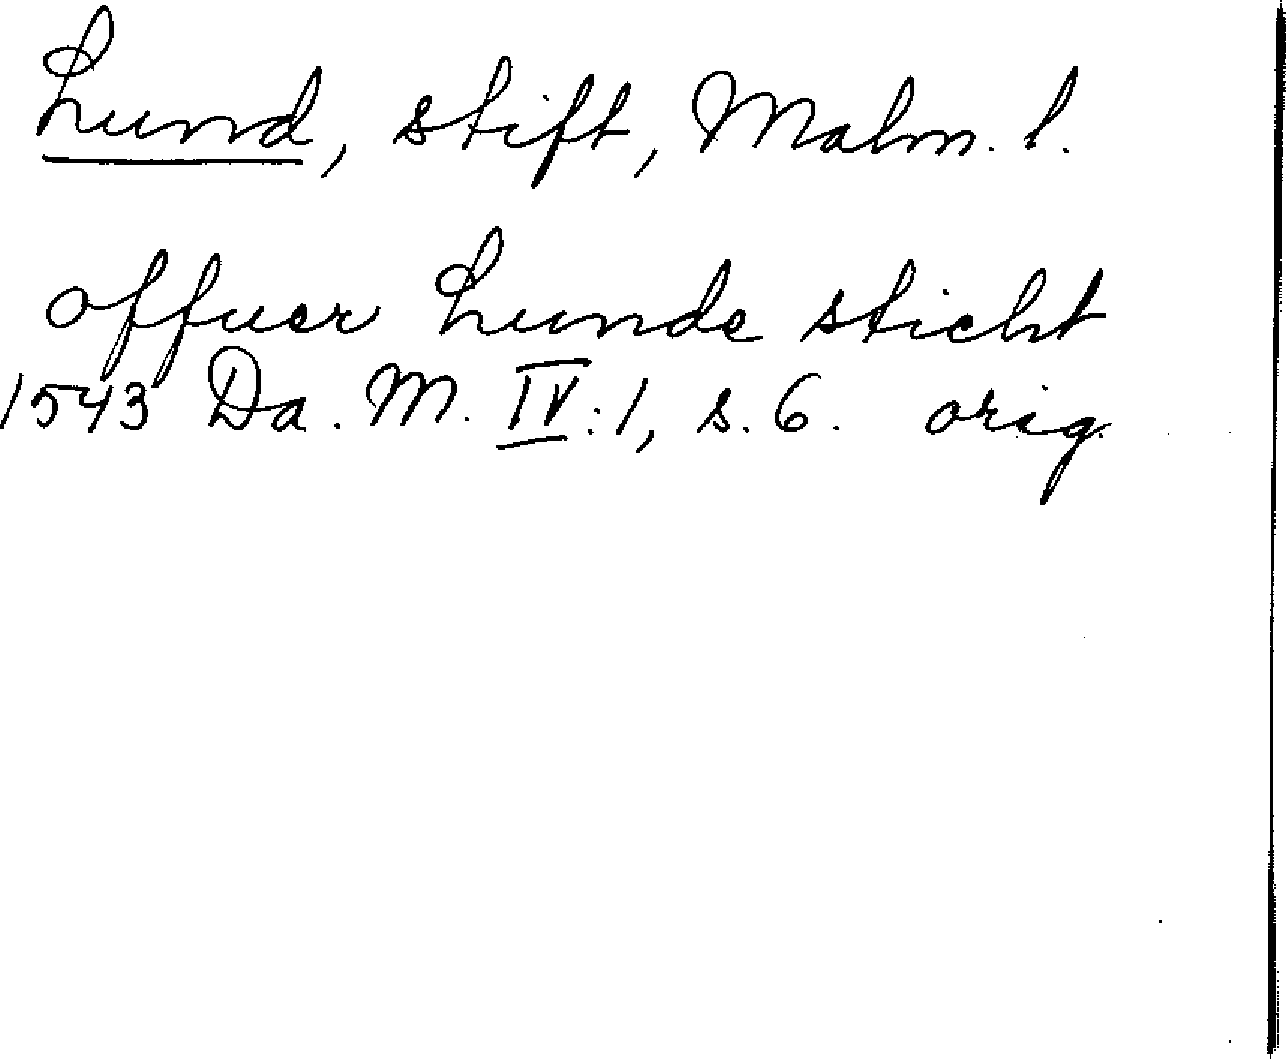 Lund, stift, Malm. l.
offuer Lunde sticht
1543 Da. M. IV:1, s. 6. orig.